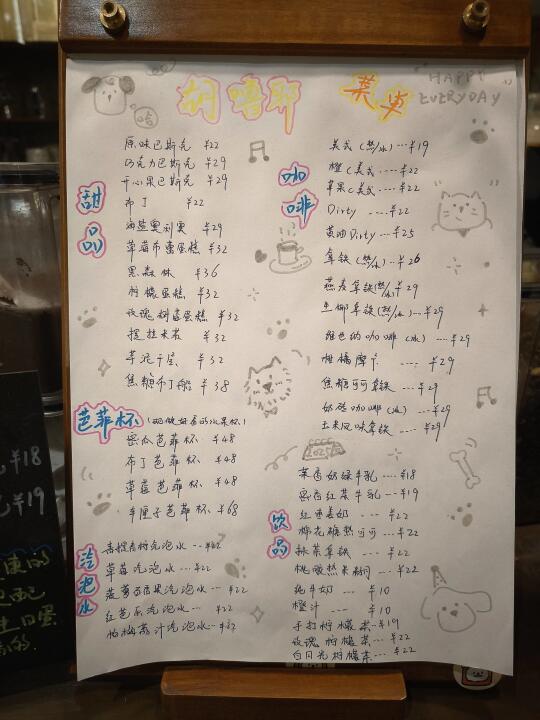 胡噜耶 菜单
HAPPY EVERYDAY
哈
甜品
原味巴斯克 ¥22
巧克力巴斯克 ¥29
开心果巴斯克 ¥29
布丁 ¥22
海盐奥利奥 ¥29
草莓布蕾蛋糕 ¥32
黑森林 ¥36
柠檬蛋糕 ¥32
玫瑰树莓蛋糕 ¥32
提拉米苏 ¥32
芋泥千层 ¥32
焦糖布丁船 ¥38
芭菲杯
蜜瓜芭菲杯 ¥48
布丁芭菲杯 ¥48
草莓芭菲杯 ¥48
车厘子芭菲杯 ¥68
汽泡水
气泡水 ...¥22
草莓汽泡水 ...¥22
菠萝百香果汽泡水 ...¥22
红芭乐汽泡水 ... ¥22
杨梅荔汁汽泡水...¥22
咖啡
美式(热/冰)...¥19
橙C美式....¥22
苹果C美式....¥22
Dirty ....¥22
黄油Dirty ...¥25
拿铁(热/冰) ...¥26
燕麦拿铁(热/冰)...¥29
生椰拿铁(热/冰)...¥29
维也纳咖啡(冰)...¥29
柑橘摩卡 .... ¥29
焦糖可可拿铁 ... ¥29
奶砖咖啡(冰)...¥29
玉米风味拿铁 ....¥29
2025
饮品
茉香奶绿牛乳...¥18
蜜香红茶牛乳...¥19
红枣姜奶 ...¥22
棉花糖热可可...¥22
抹茶拿铁 ...¥22
桃酸热米糊 ...¥22
纯牛奶 ... ¥10
橙汁 ... ¥10
手打柠檬茶...¥19
玫瑰柠檬茶...¥22
白月光柠檬茶...¥22
¥18
¥19